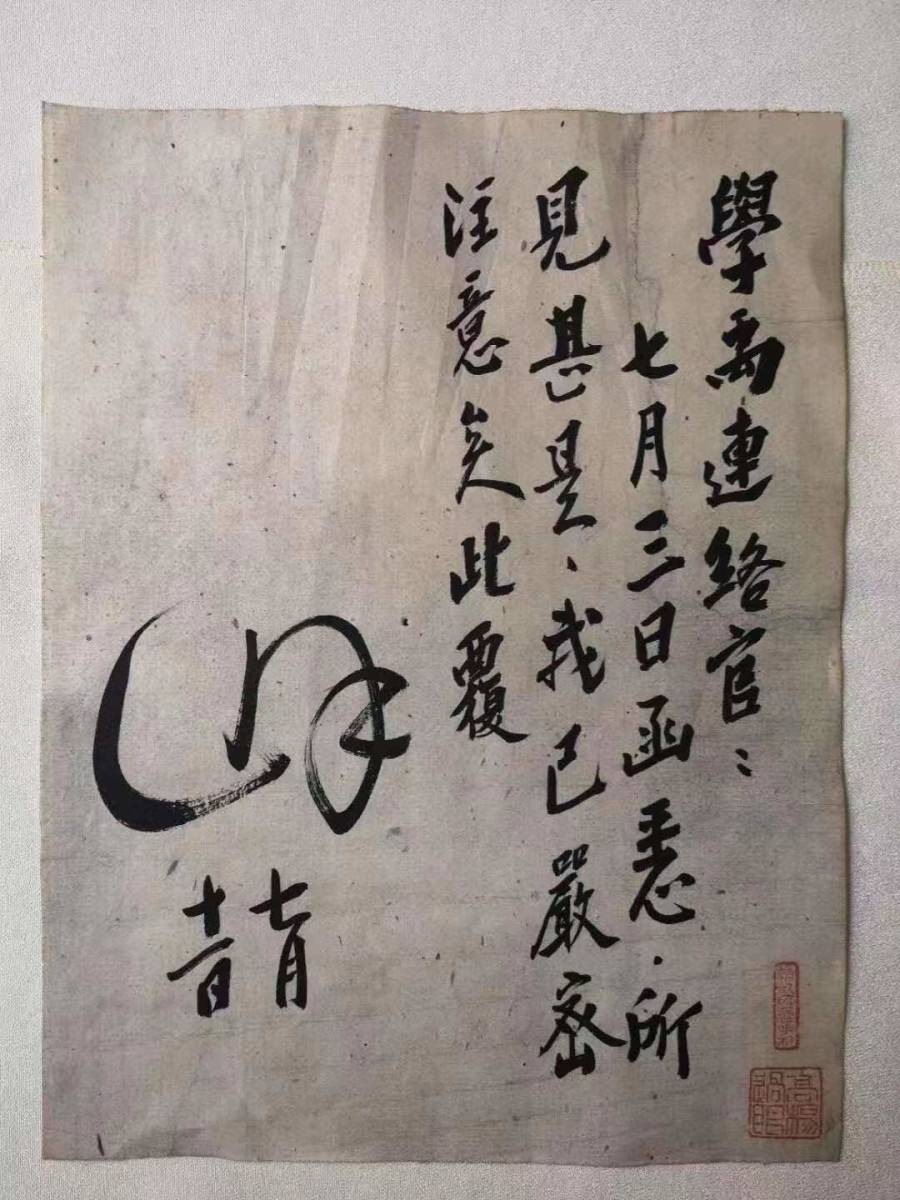 學禹連絡官：
七月三日函悉．所
見甚是、我已嚴密
注意矣此覆
七月
十一日